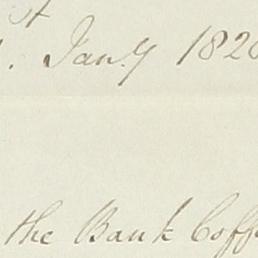 st
. Jan.y 1820
the Bank Coff